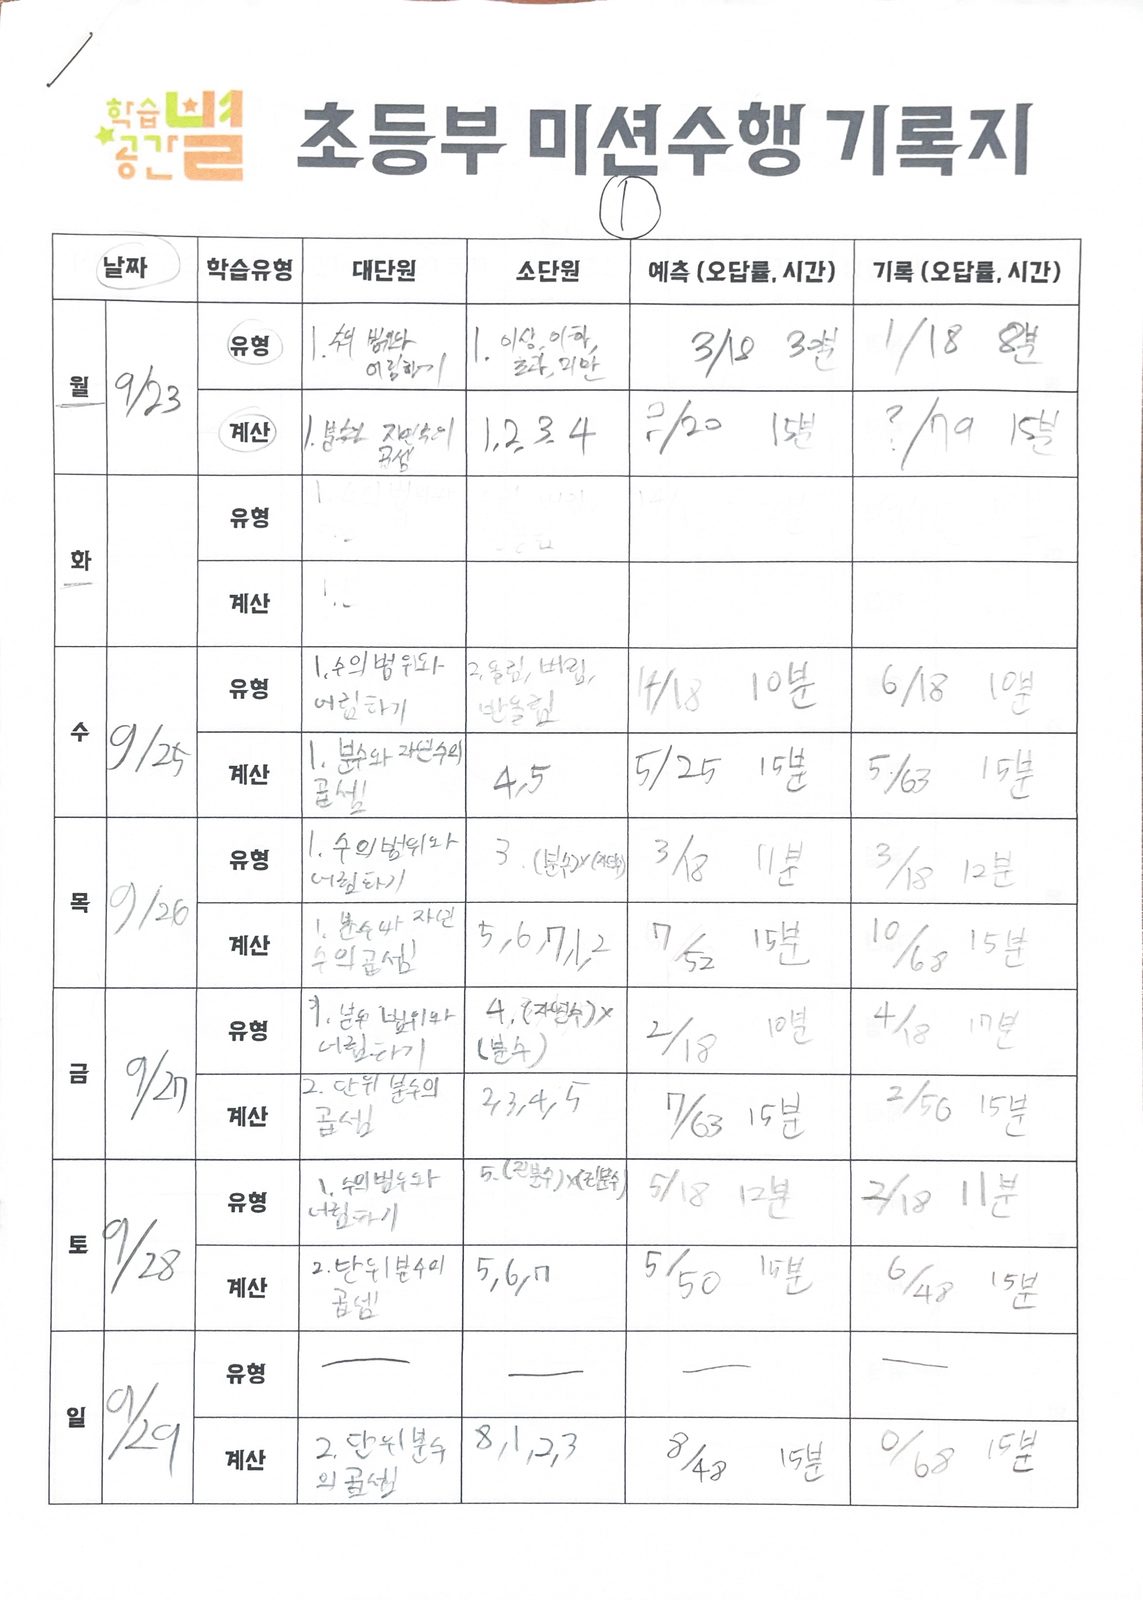 학습
공간
별
초등부 미션수행 기록지
1
날짜 학습유형 대단원 소단원 예측 (오답률, 시간) 기록 (오답률, 시간)
월 9/23 유형 1. 수의 범위와 1. 이상, 이하, 3/18 1/18 8분
어림하기 초과, 미만
계산 1. 분수와 자연수의 1, 2, 3, 4 /20 15분 ?/79 15분
곱셈
화 유형
계산
수 9/25 유형 1. 수의 범위와 2. 올림, 버림, /18 10분 6/18 10분
어림하기 반올림
계산 1. 분수와 자연수의 4, 5 5/25 15분 5/63 15분
곱셈
목 9/26 유형 1. 수의 범위와 3. (분수)×(자연수) 3/18 11분 3/18 12분
어림하기
계산 1. 분수와 자연 5, 6, 7, 1, 2 7/52 15분 10/68 15분
수의 곱셈
금 9/27 유형 범위와 4. (자연수)× 2/18 10분 4/18 17분
어림하기 (분수)
계산 2. 단위 분수의 2, 3, 4, 5 7/63 15분 2/50 15분
곱셈
토 9/28 유형 1. 수의 범위와 5. (진분수)×(진분수) 5/18 12분 2/18 11분
어림하기
계산 2. 단위 분수의 5, 6, 7 5/50 15분 6/48 15분
곱셈
일 9/29 유형 — — — —
계산 2. 단위 분수 8, 1, 2, 3 8/48 15분 0/68 15분
의 곱셈